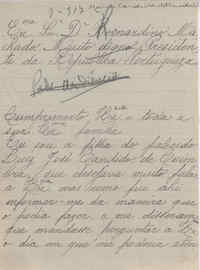 Exma Sr. Dr. Bernardino Ma-
chado Muito digno Presidente
da Republica Portugueza
Pede audiencia
Cumprimento V. Exa e toda a
sua Exa familia
Eu sou a filha do falecido
Luiz José Candido de Coim-
bra, que desejava muito falar
a V. Exa mas como fui ahi
informar-me da maneira que
o podia fazer, e me disseram
que mandasse perguntar a V. Exa
o dia em que me poderia aten